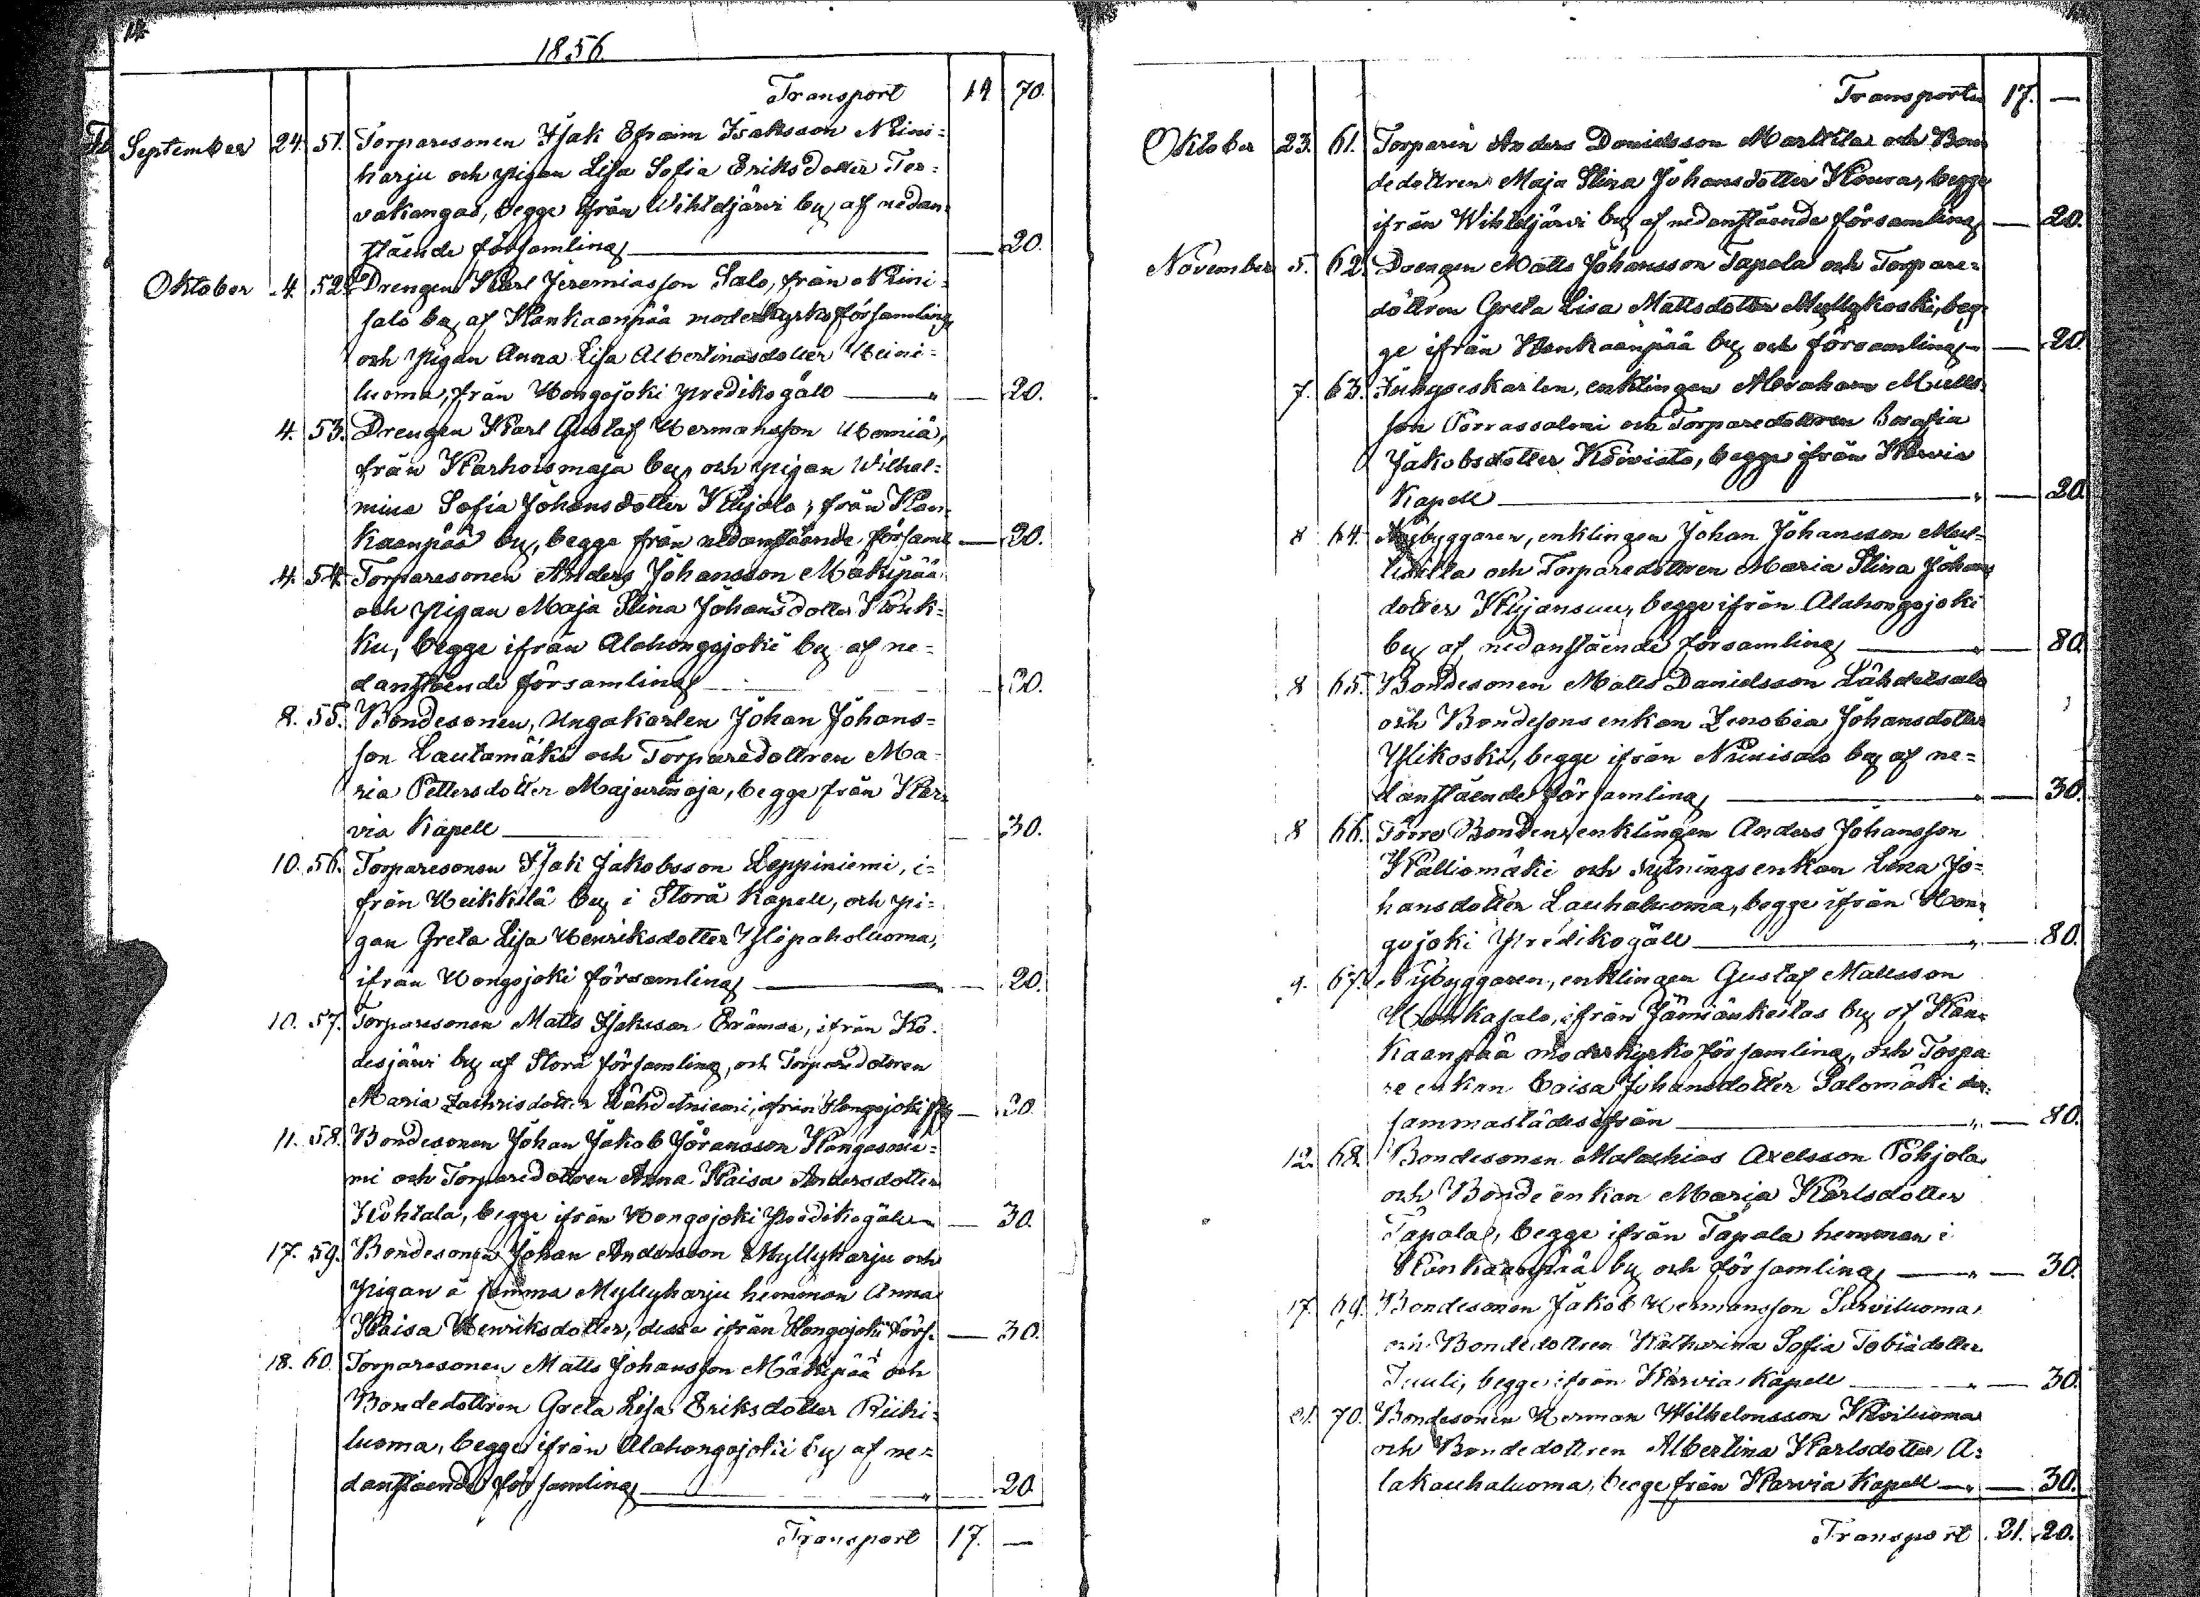 1856.
Transport 14 70.
September 24. 51. Torparesonen Isak Efraim Isaksson Niini-
harju och pigan Lisa Sofia Eriksdotter Ter-
vakangas, begge ifrån Wihteljärvi by af nedan-
stående församling 20.
Oktober 4. 52. Drengen Karl Jeremiasson Salo, från Niini-
salo by af Kankaanpää moderkyrkoförsamling
och pigan Anna Lisa Albertinasdotter Heini-
luoma, från Hongojoki predikogäll " — 20.
4. 53. Drengen Karl Gustaf Hermansson
från Karhoismaja by, och pigan Wilhel-
mina Sofia Johansdotter Kujala, från Kan-
kaanpää by, begge från nedanstående församl — 20.
4. 54. Torparesonen Anders Johansson Mäkipää
och pigan Maja Stina Johansdotter Kouk-
ku, begge ifrån Alahongojoki by af ne-
danstående församling 20.
8. 55. Bondesonen, ungakarlen Johan Johans-
son Lautamäki och Torparedottren Ma-
ria Pettersdotter Majurinoja, begge från Kar-
via Kapell 30.
10. 56. Torparesonen Isak Jakobsson Leppiniemi, i-
från Heikkilä by i Storå Kapell, och pi-
gan Greta Lisa Henriksdotter Ylipaholuoma,
ifrån Hongojoki församling — 20.
10. 57. Torparesonen Matts Isaksson Erämaa, ifrån Ko-
desjärvi by af Storå församling, och Torparedottren
Maria Zachrisdotter Lähdetniemi, ifrån Hongojoki — 20.
11. 58. Bondesonen Johan Jakob Jöransson Kangasnie-
mi och Torparedottren Anna Kaisa Andersdotter
begge ifrån Hongojoki Predikogäll — 30.
17. 59. Bondesonen Johan Andersson Myllyharju och
pigan å samma Myllyharju hemman Anna
Kaisa Henriksdotter, desse ifrån Hongojoki förs. — 30.
18. 60. Torparesonen Matts Johansson Mäkipää och
Bondedottren Greta Lisa Eriksdotter Riihi-
luoma, begge ifrån Alahongojoki by af ne-
danstående församling " — 20.
Transport 17. —
Transport 17. —
Oktober 23. 61. Torparen Anders Danielsson Markkila och Bon-
dedottren Maja Stina Johansdotter Koura, begge
ifrån Wihteljärvi by af nedanstående församling — 20.
November 5. 62. Drengen Matts Johansson Tapala och Torpare-
dottren Greta Lisa Mattsdotter Myllykoski, beg-
ge ifrån Kankaanpää by och församling — 20
7. 63. enklingen Abraham Matts-
son Porrassalmi och Torparedottren Serafia
Jakobsdotter Koivisto, begge ifrån Karvia
Kapell " — 20
8 64. Nybyggaren, enklingen Johan Johansson
och Torparedottren Maria Stina Johans-
dotter Kujansuu, begge ifrån Alahongojoki
by af nedanstående församling " — 80.
8 65. Bondesonen Matts Danielsson Lähdetsalo
och Bondesonsenkan Zenobia Johansdotter
Ylikoski, begge ifrån Niinisalo by af ne-
danstående församling " — 30.
8 66. Förre Bonden, enklingen Anders Johansson
Kalliomäki och Sytningsenkan Lena Jo-
hansdotter Lauhaluoma, begge ifrån Hon-
gojoki Predikogäll " — 80.
9. 67. Nybyggaren, enklingen Gustaf Mattsson
Honkasalo, ifrån Jämiänkeitas by af Kan-
kaanpää moderkyrkoförsamling, och Torpa-
re enkan Caisa Johansdotter Salomäki der-
sammastädesifrån " — 80.
12. 68. Bondesonen Malachias Axelsson Pohjola
och Bonde enkan Maria Karlsdotter
Tapala, begge ifrån Tapala hemman i
Kankaanpää by och församling " — 30.
17. 69. Bondesonen Jakob Hermansson Sarviluoma
och Bondedottren Katharina Sofia Tobiadotter
Tuuli, begge ifrån Karvia Kapell " — 30.
21. 70. Bondesonen Herman Wilhelmsson Kiviluoma
och Bondedottren Albertina Karlsdotter A-
lakauhaluoma, begge från Karvia Kapell " — 30.
Transport 21. 20.